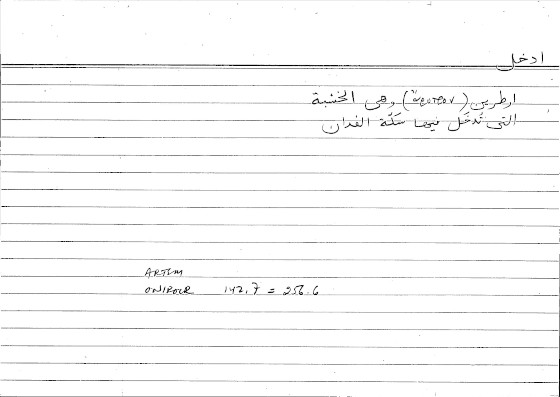 ادخل
ارطرين (ἄροτρον) وهى الخشبة
التى تُدخَل فيها سَكّة الفدان
ARTEM
ONIROCR 142.7 = 256.6